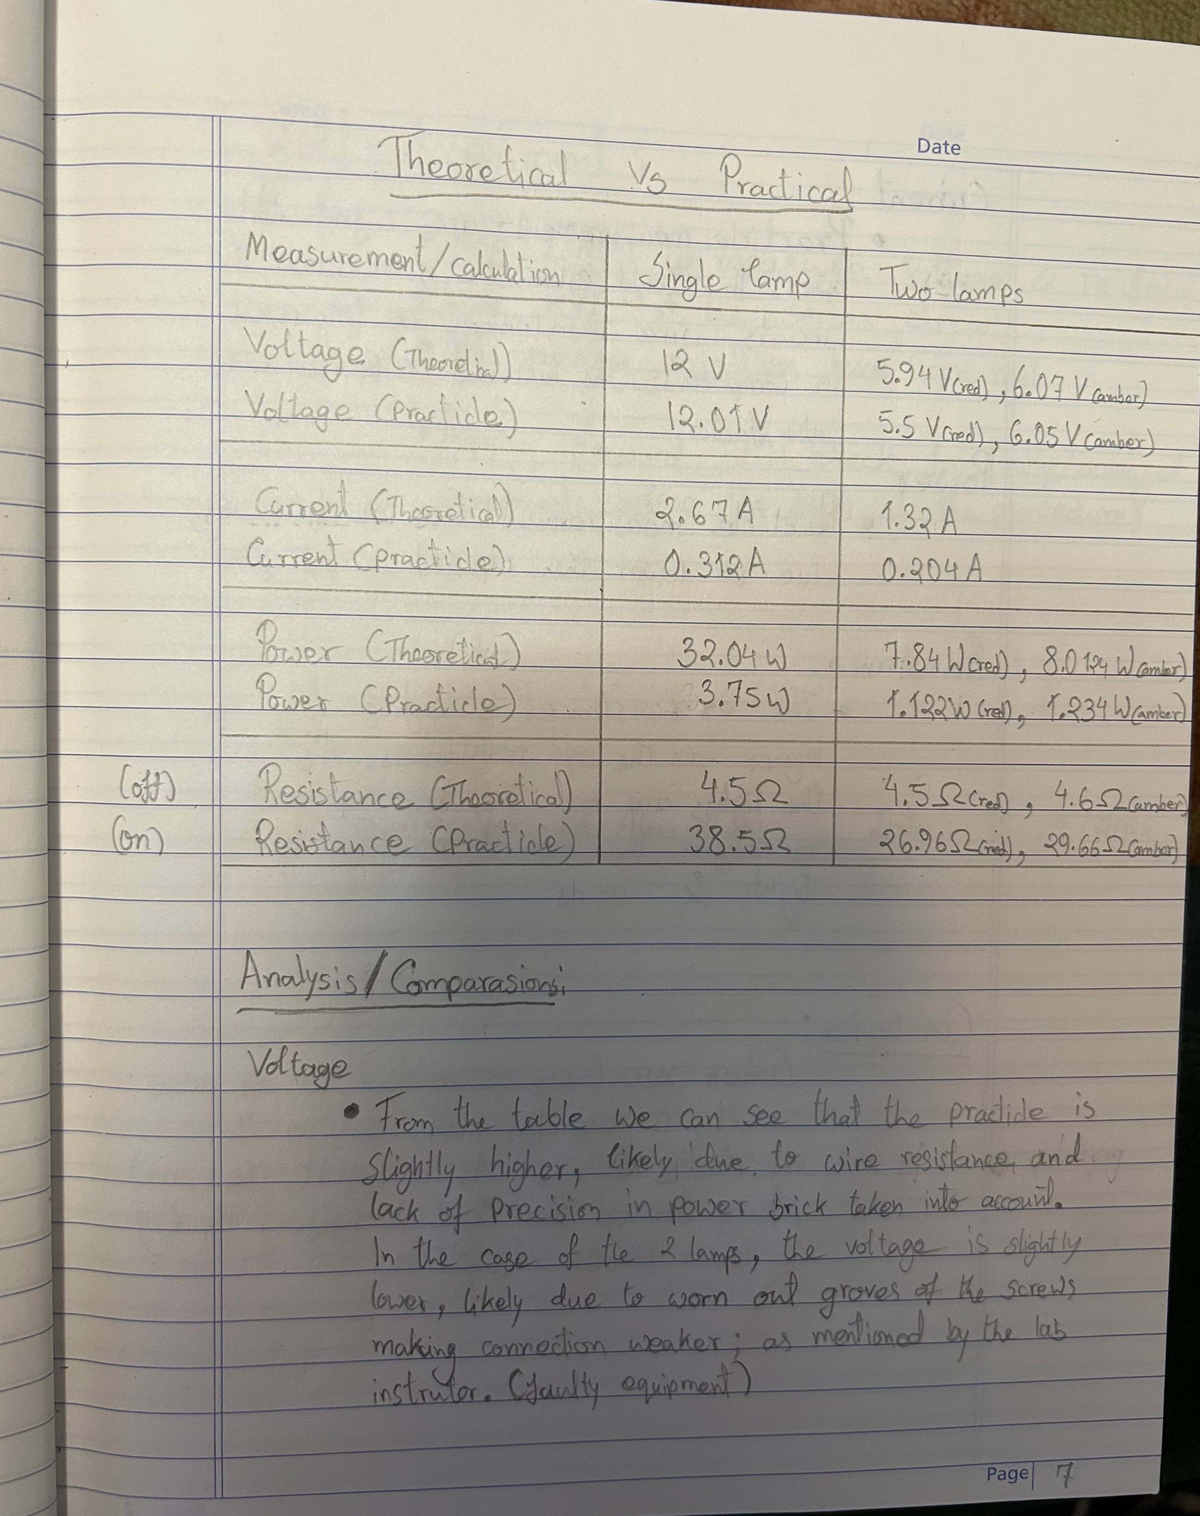 Date
Theoretical Vs Practical
Measurement/calculation Single lamp Two lamps
Voltage (Theoretical) 12 V 5.94 V(red), 6.07 V(amber)
Voltage (Practicle) 12.01 V 5.5 V(red), 6.05 V(amber)
Current (Theoretical) 2.67 A 1.32 A
Current (Practicle) 0.312 A 0.204 A
Power (Theoretical) 32.04 W 7.84 W(red), 8.0124 W(amber)
Power (Practicle) 3.75 W 1.122 W(red), 1.234 W(amber)
(off) Resistance (Theoretical) 4.5 Ω 4.5 Ω(red), 4.6 Ω(amber)
(on) Resistance (Practicle) 38.5 Ω 26.96 Ω(red), 29.66 Ω(amber)
Analysis/Comparasions:
Voltage
• From the table we can see that the practicle is
slightly higher, likely due to wire resistance and
lack of precision in power brick taken into account.
In the case of the 2 lamps, the voltage is slightly
lower, likely due to worn out groves of the screws
making connection weaker; as mentioned by the lab
instrutor. (faulty equipment)
Page 7